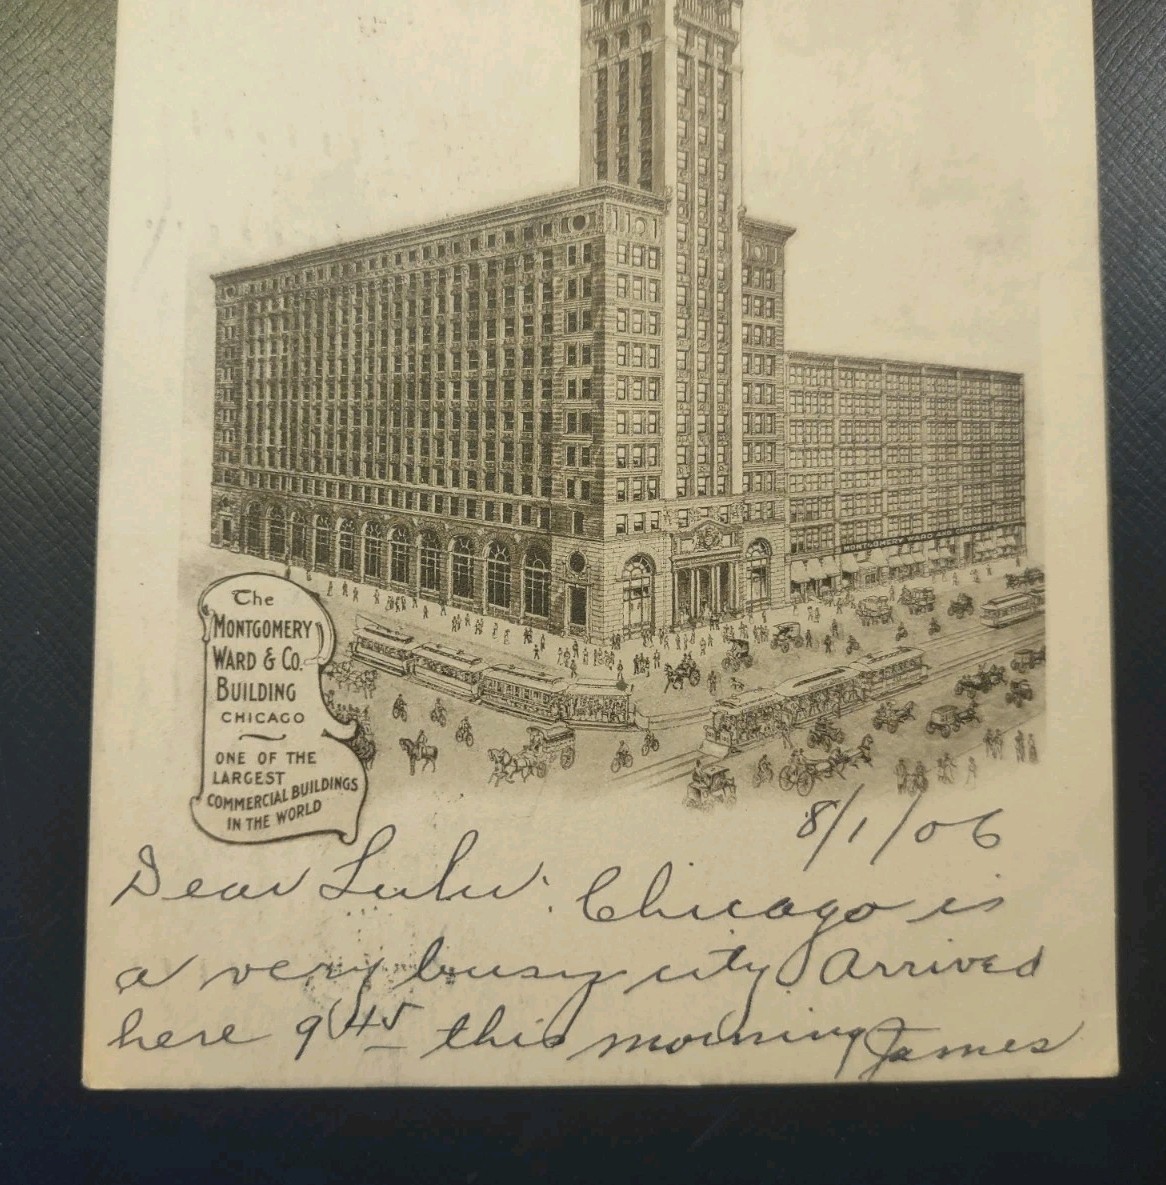 MONTGOMERY WARD AND CO
The
MONTGOMERY
WARD & CO.
BUILDING
CHICAGO
ONE OF THE
LARGEST
COMMERCIAL BUILDINGS
IN THE WORLD
8/1/06
Dear Lulu: Chicago is
a very busy city Arrived
here 9 45 this morning James